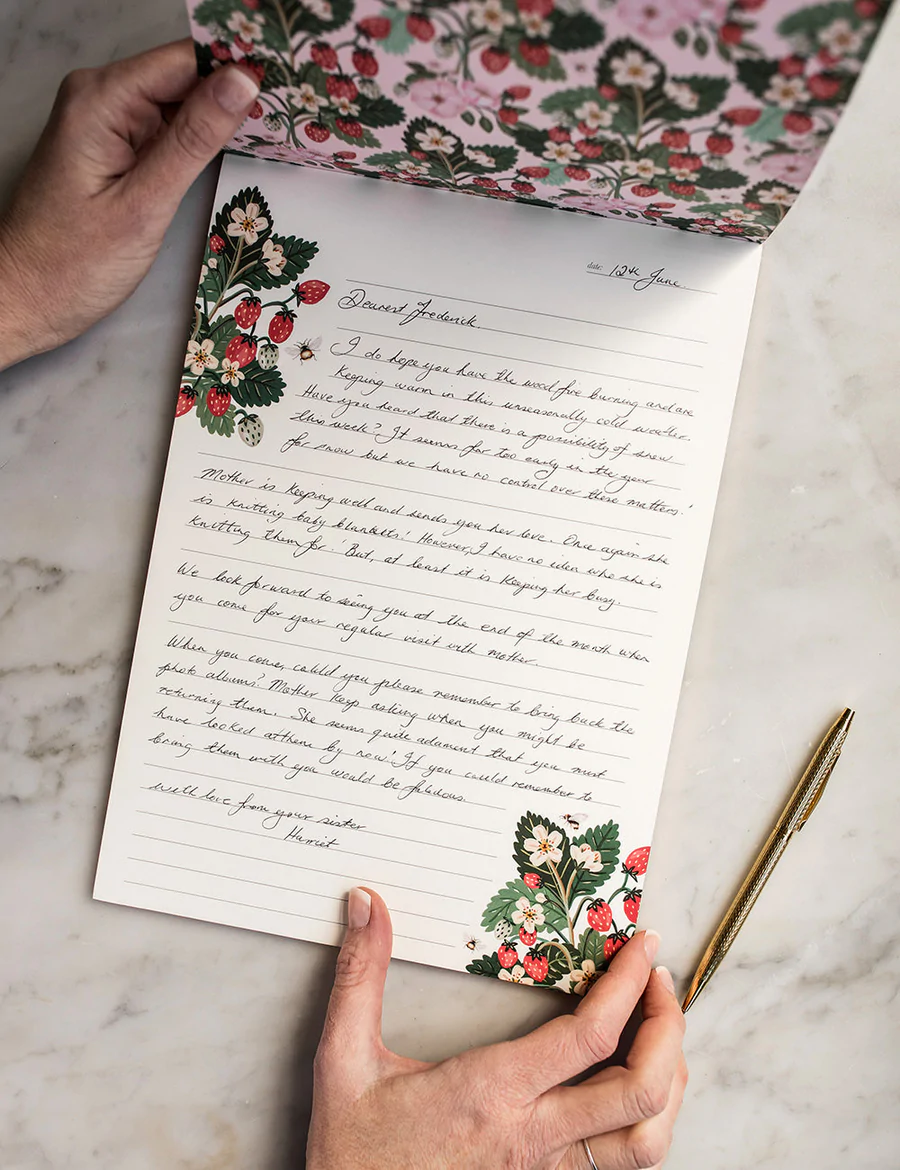 date: 12th June
Dearest Frederick.
I do hope you have the wood fire burning and are
keeping warm in this unseasonally cold weather.
Have you heard that there is a possibility of snow
this week? It seems far too early in the year
for snow but we have no control over these matters!
Mother is keeping well and sends you her love. Once again she
is knitting baby blankets! However, I have no idea who she is
knitting them for! But, at least it is keeping her busy.
We look forward to seeing you at the end of the month when
you come for your regular visit with Mother.
When you come, could you please remember to bring back the
photo albums? Mother keep asking when you might be
returning them. She seems quite adament that you must
have looked at them by now! If you could remember to
bring them with you would be fabulous.
well love from your sister
Harriet